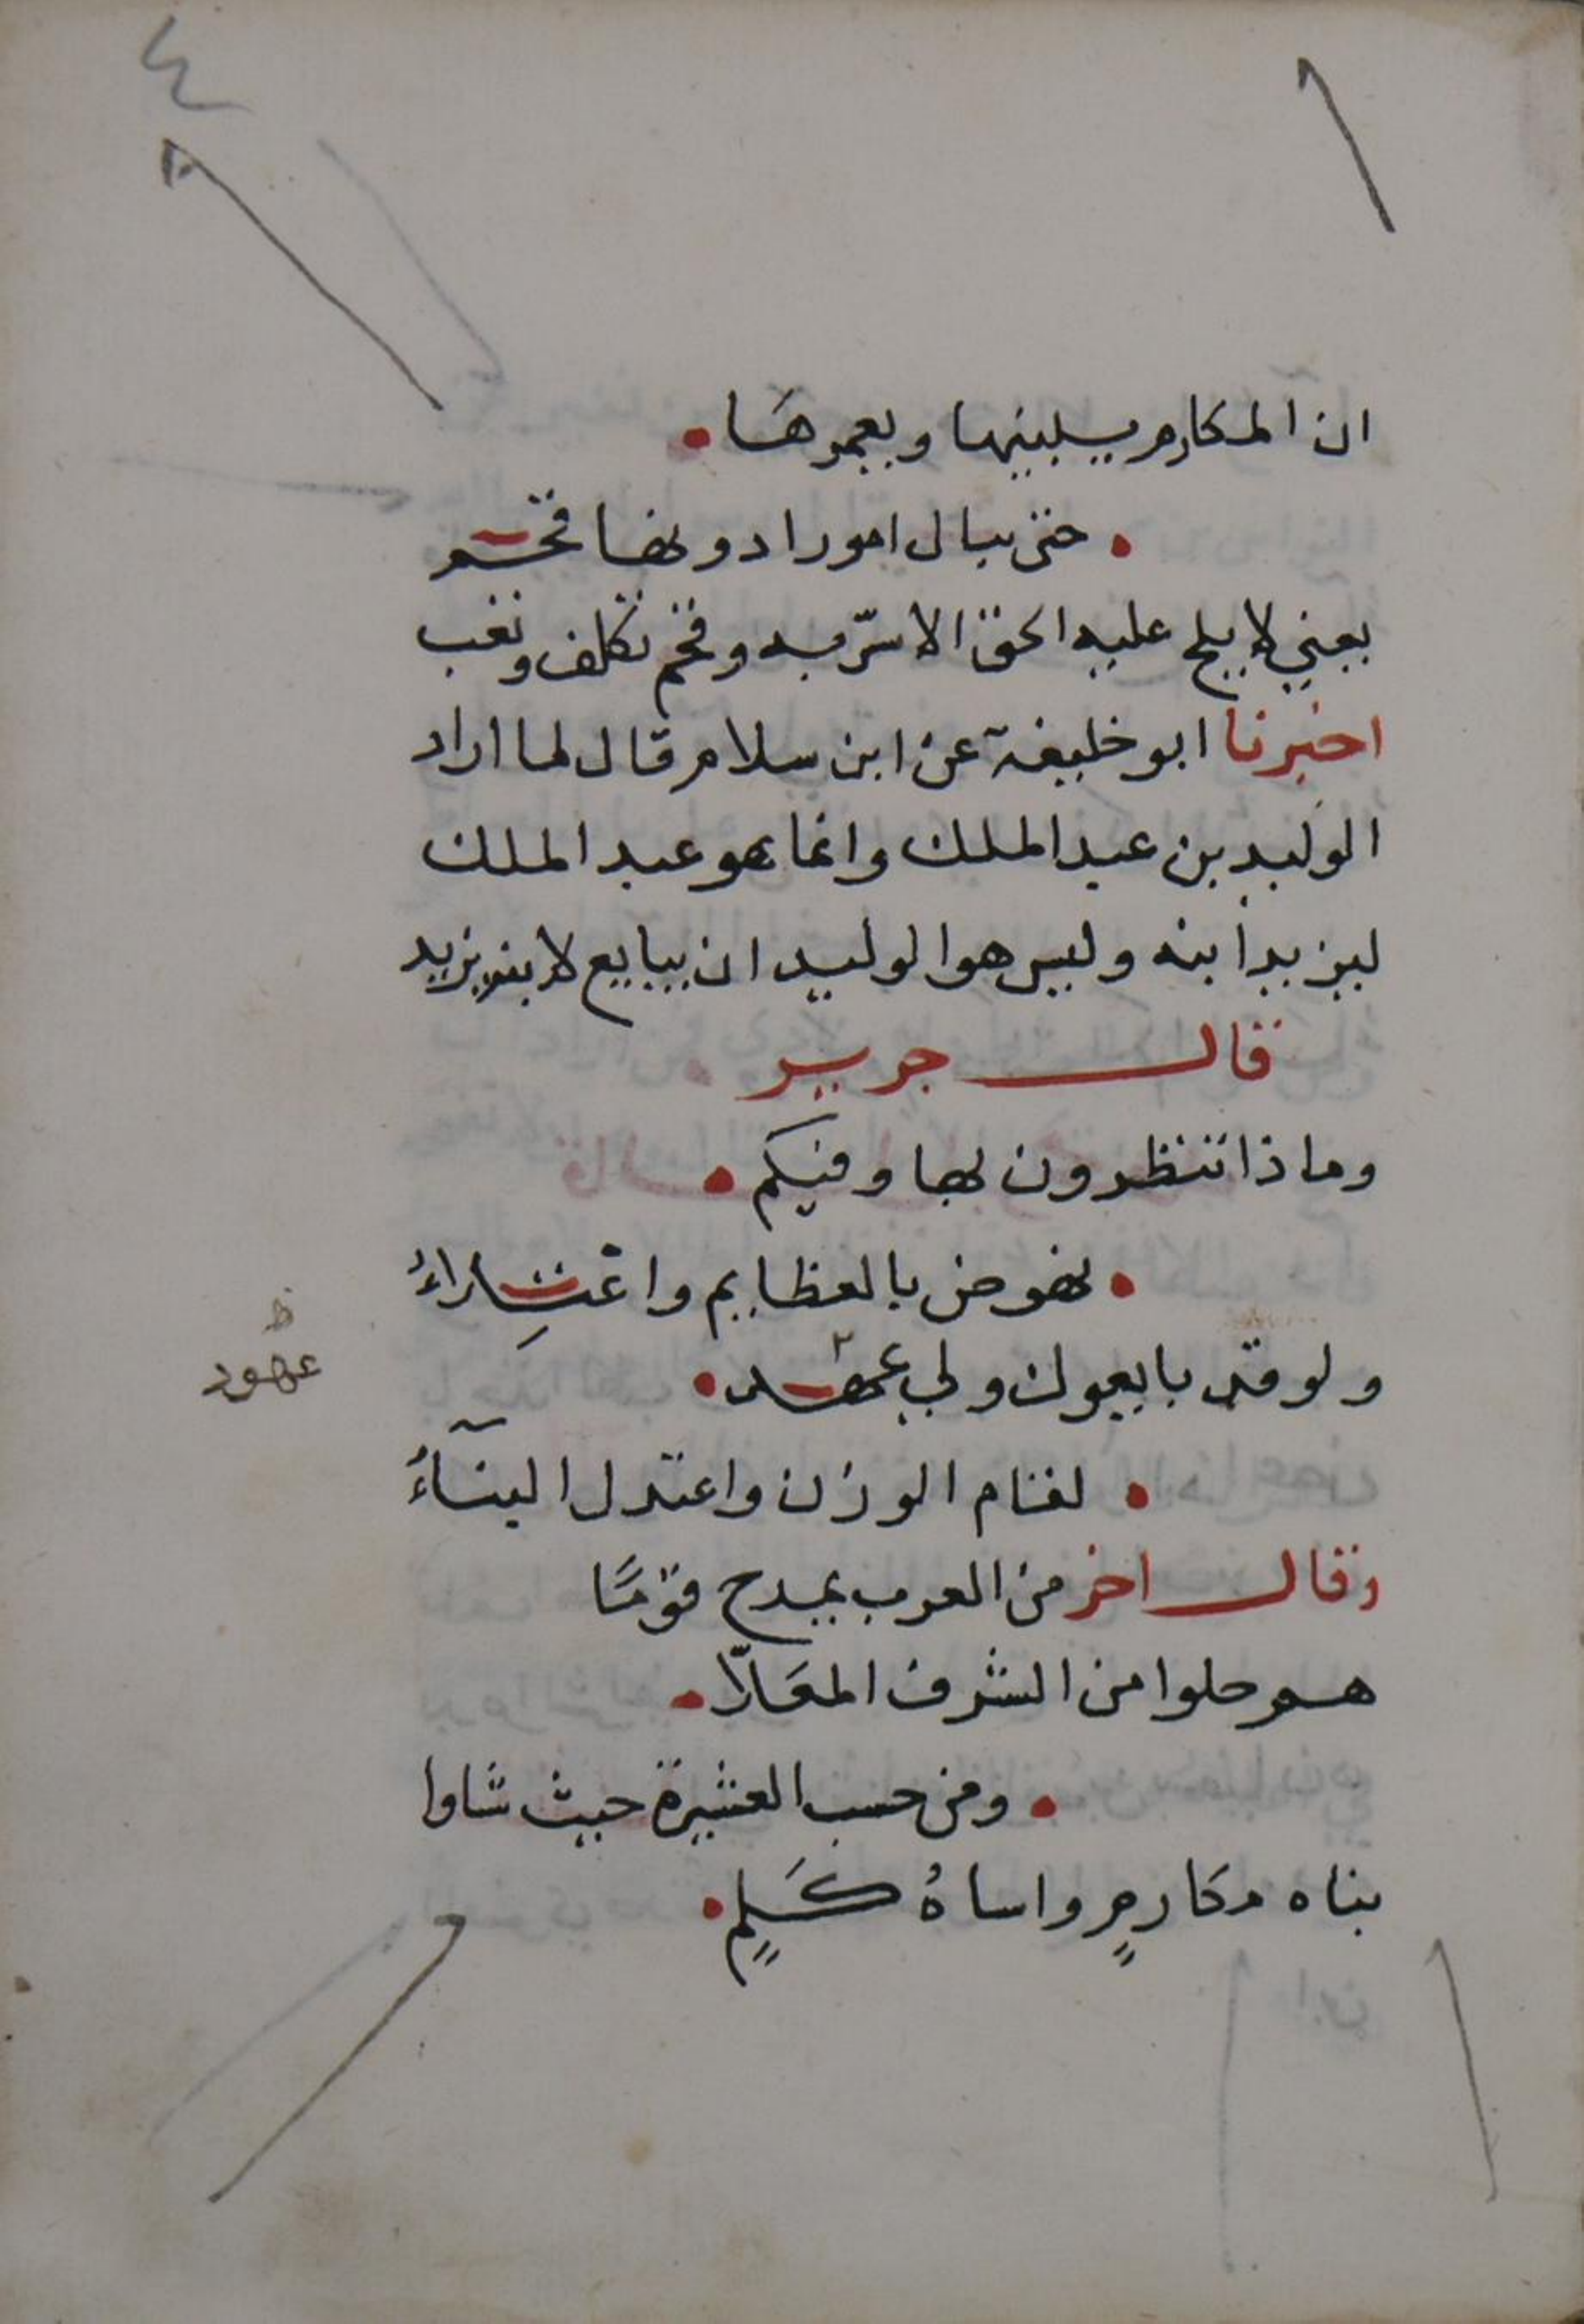 ٤
ان المكارم يسلبنها ويعمرها
حتى ينال امورا دونها قحم
يعني لا يلح عليه الحق الا سرّ به وقحم تكلف وتعب
اخبرنا ابو خليفة عن ابن سلام قال لما اراد
الوليد بن عبد الملك وانما هو عبد الملك
ليزيد ابنه وليس هو الوليد ان يبايع لابنه يزيد
قال جرير
وماذا تنظرون بها وفيكم
نهوض بالعظايم واعتِزاءُ
ولو قد بايعوك ولي عهد
ظ
عهود
لقام الوزن واعتدل البنآءُ
وقال اخر من العرب يمدح قومًا
هم حلوا من الشرف المعَلّا
ومن حسب العشيرة حيث شاوا
بناه مكارمٍ واساةُ كَلمٍ